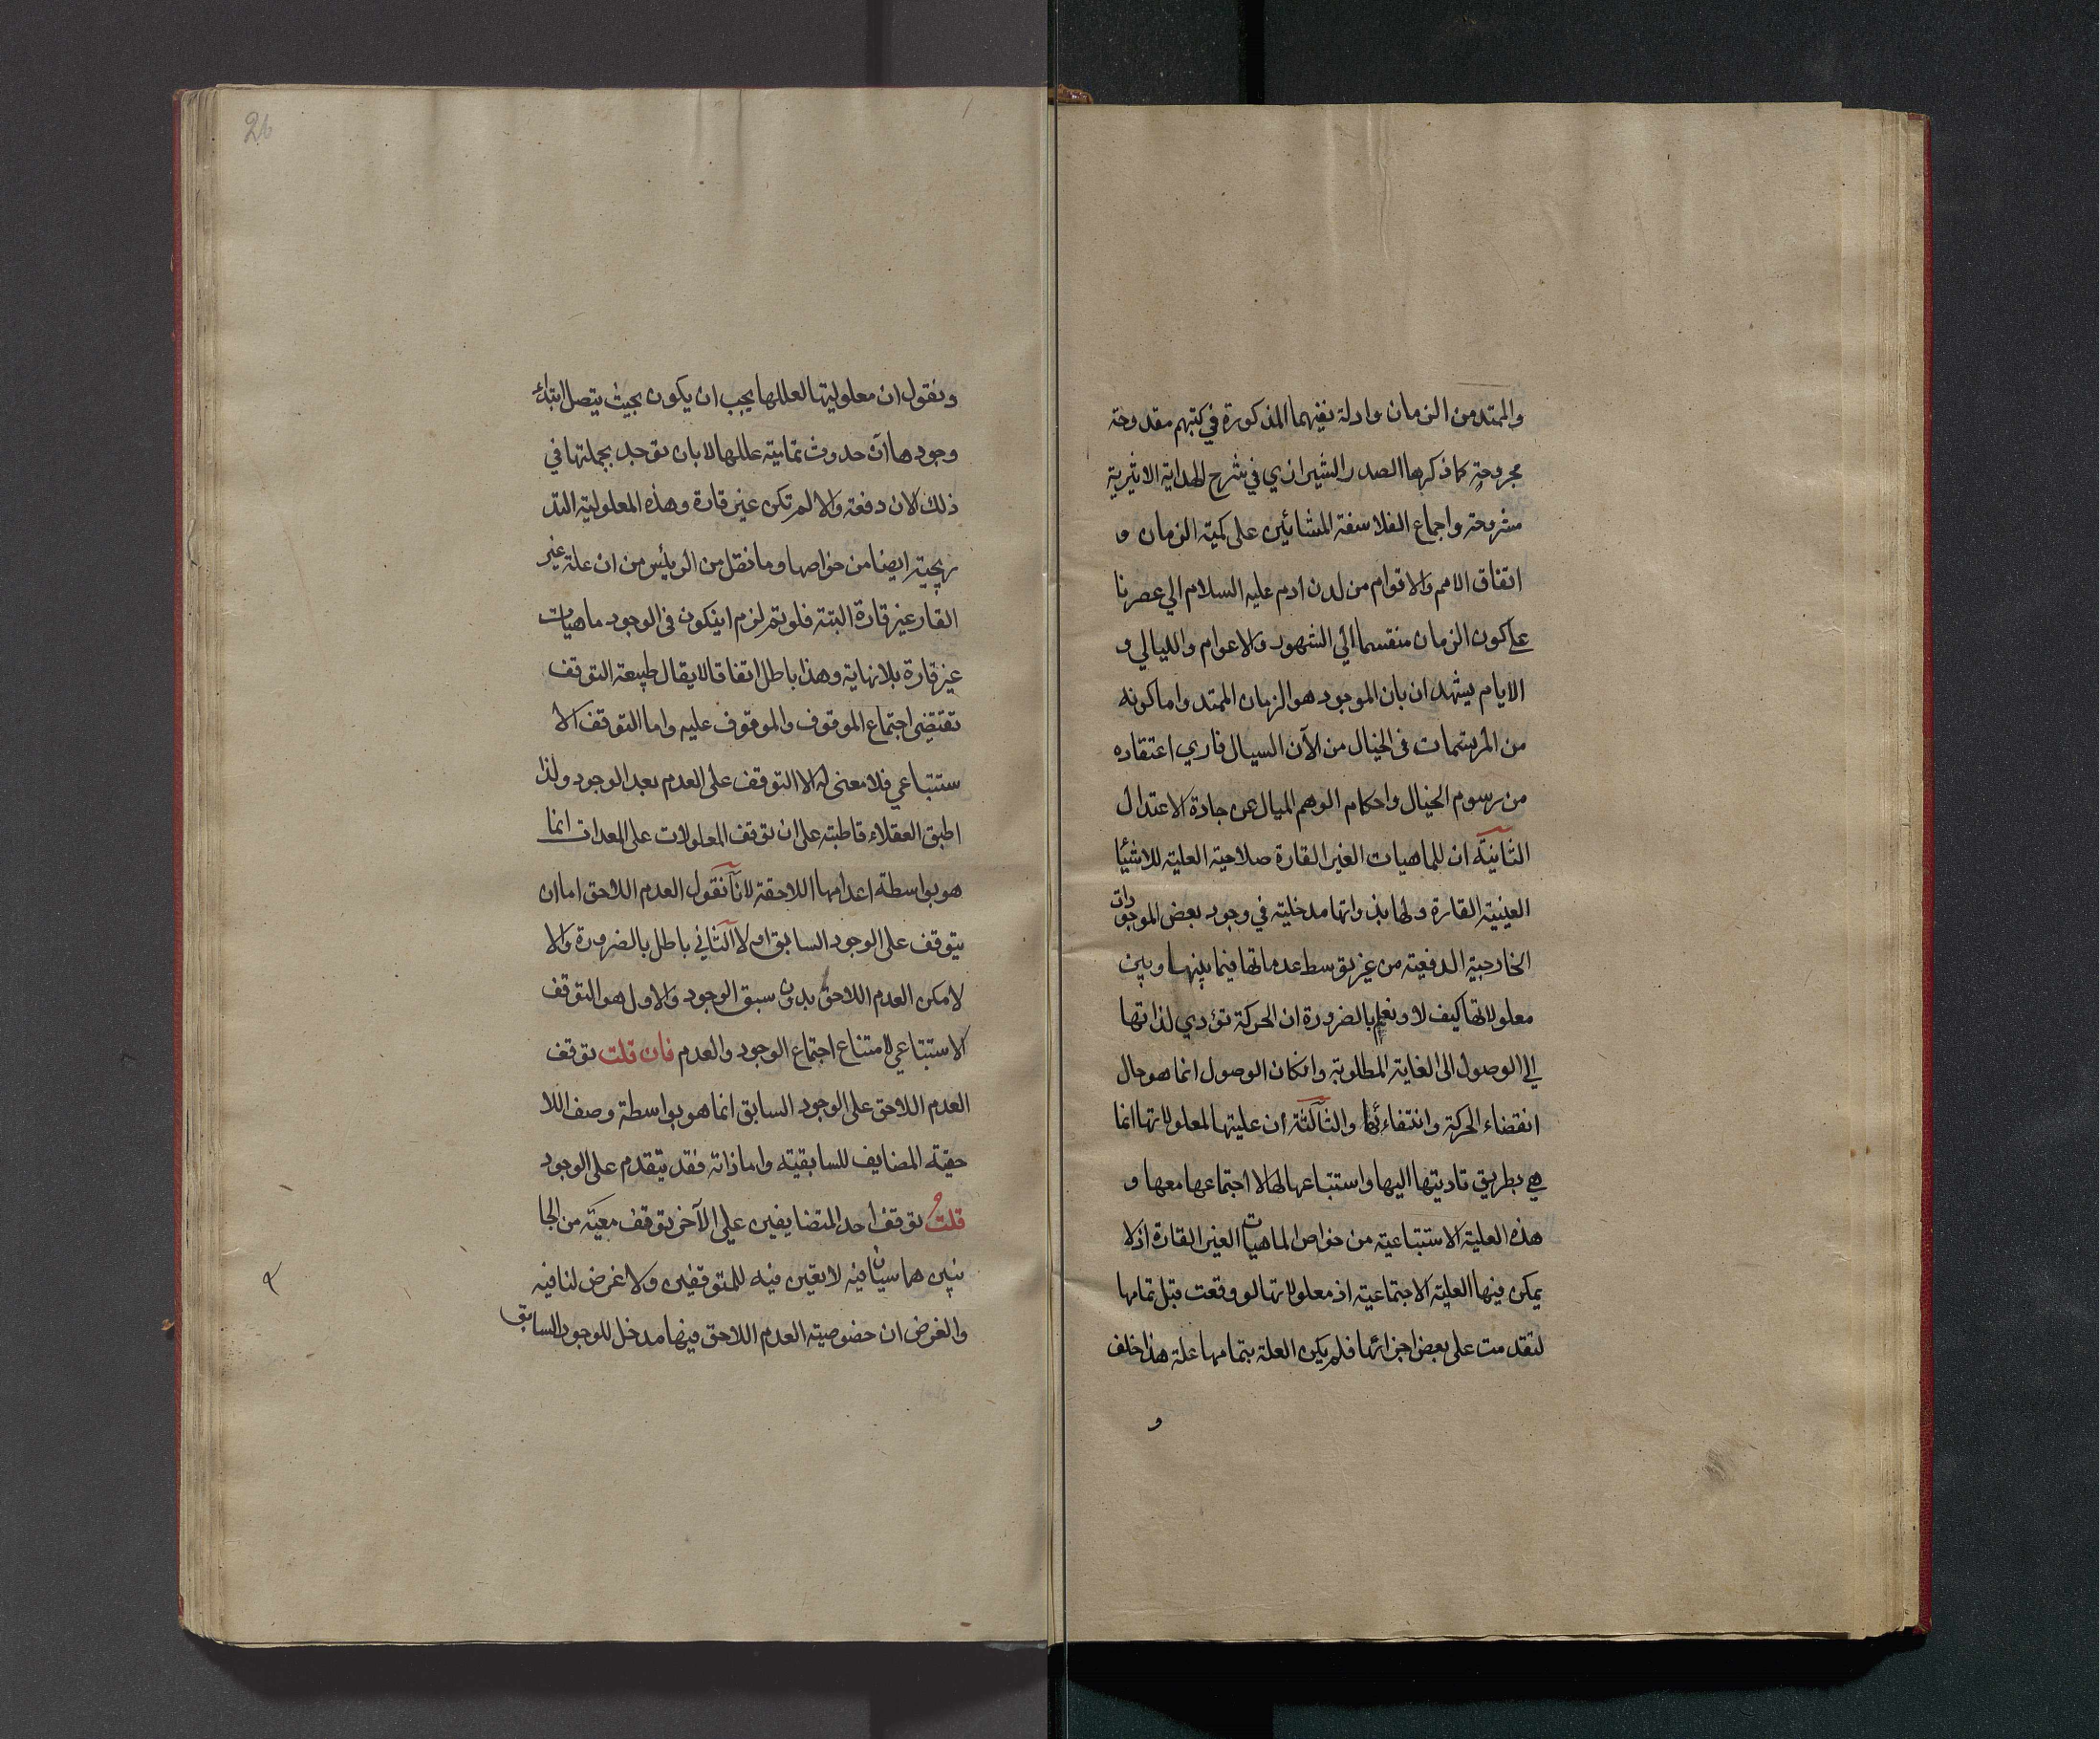 والممتد من الزمان وادلة نفيهما المذكورة في كتبهم مقدوحة
مجروحة كما ذكرها الصدر الشيرازي في شرح الهداية الاثيرية
مشروحة واجماع الفلاسفة المشائين على كمية الزمان و
اتفاق الامم والاقوام من لدن ادم عليه السلام الي عصرنا
على كون الزمان منقسما الي الشهور والاعوام والليالي و
الايام يشهدان بان الموجود هو الزمان الممتد واما كونه
من المرتسمات في الخيال من الآن السيال فاري اعتقاده
من رسوم الخيال واحكام الوهم الميال عن جادة الاعتدال
الثانية ان للماهيات الغير القارة صلاحية العلية للاشيا
العينية القارة ولها بذواتها مدخلية في وجود بعض الموجودات
الخارجية الدفعية من غير توسط عدماتها فيما بينها وبين
معلولاتها كيف لا ونعلم بالضرورة ان الحركة تؤدي لذاتها
الي الوصول الى الغاية المطلوبة وانكان الوصول انما هو حال
انقضاء الحركة وانتفاءئها والثالثة ان عليتها لمعلولاتها انما
هي بطريق تاديتها اليها واستتباعها لها لا اجتماعها معها و
هذه العلية الاستتباعية من خواص الماهيات الغير القارة اذ لا
يمكن فيها العلية الاجتماعية اذ معلولاتها لو وقعت قبل تمامها
لتقدمت على بعض اجزائها فلم يكن العلة بتمامها علة هذا خلف
و
26
ونقول ان معلوليتها لعللها يجب ان يكون بحيث يتصل ابتداء
وجودها آن حدوث تمامية عللها لا بان توجد بجملتها في
ذلك الان دفعة والا لم تكن غير قارة وهذه المعلولية التد
ريجية ايضا من خواصها وما نقل من الرئيس من ان علة غير
القار غير قارة البتة فلو تم لزم اينكون في الوجود ماهيات
غير قارة بلا نهاية وهذا باطل اتفاقا لا يقال طبيعة التوقف
تقتضي اجتماع الموقوف والموقوف عليه واما التوقف الا
ستتباعي فلا معنى له الا التوقف على العدم بعد الوجود ولذا
اطبق العقلاء قاطبة على ان توقف المعلولات على المعدات انما
هو بواسطة اعدامها اللاحقة لانا نقول العدم اللاحق اما ان
يتوقف على الوجود السابق ام لا الثاني باطل بالضرورة والا
لامكن العدم اللاحق بدون سبق الوجود والاول هو التوقف
الاستتباعي لامتناع اجتماع الوجود والعدم فان قلت توقف
العدم اللاحق على الوجود السابق انما هو بواسطة وصف اللا
حقية المضايف للسابقية واما ذاته فقد يتقدم على الوجود
قلت توقف احد المتضايفين علي الآخر توقف معية من الجا
نبين هما سيان فيه لا يقين فيه للمتوقفين ولا غرض لنا فيه
والغرض ان خصوصية العدم اللاحق فيها مدخل للوجود السابق